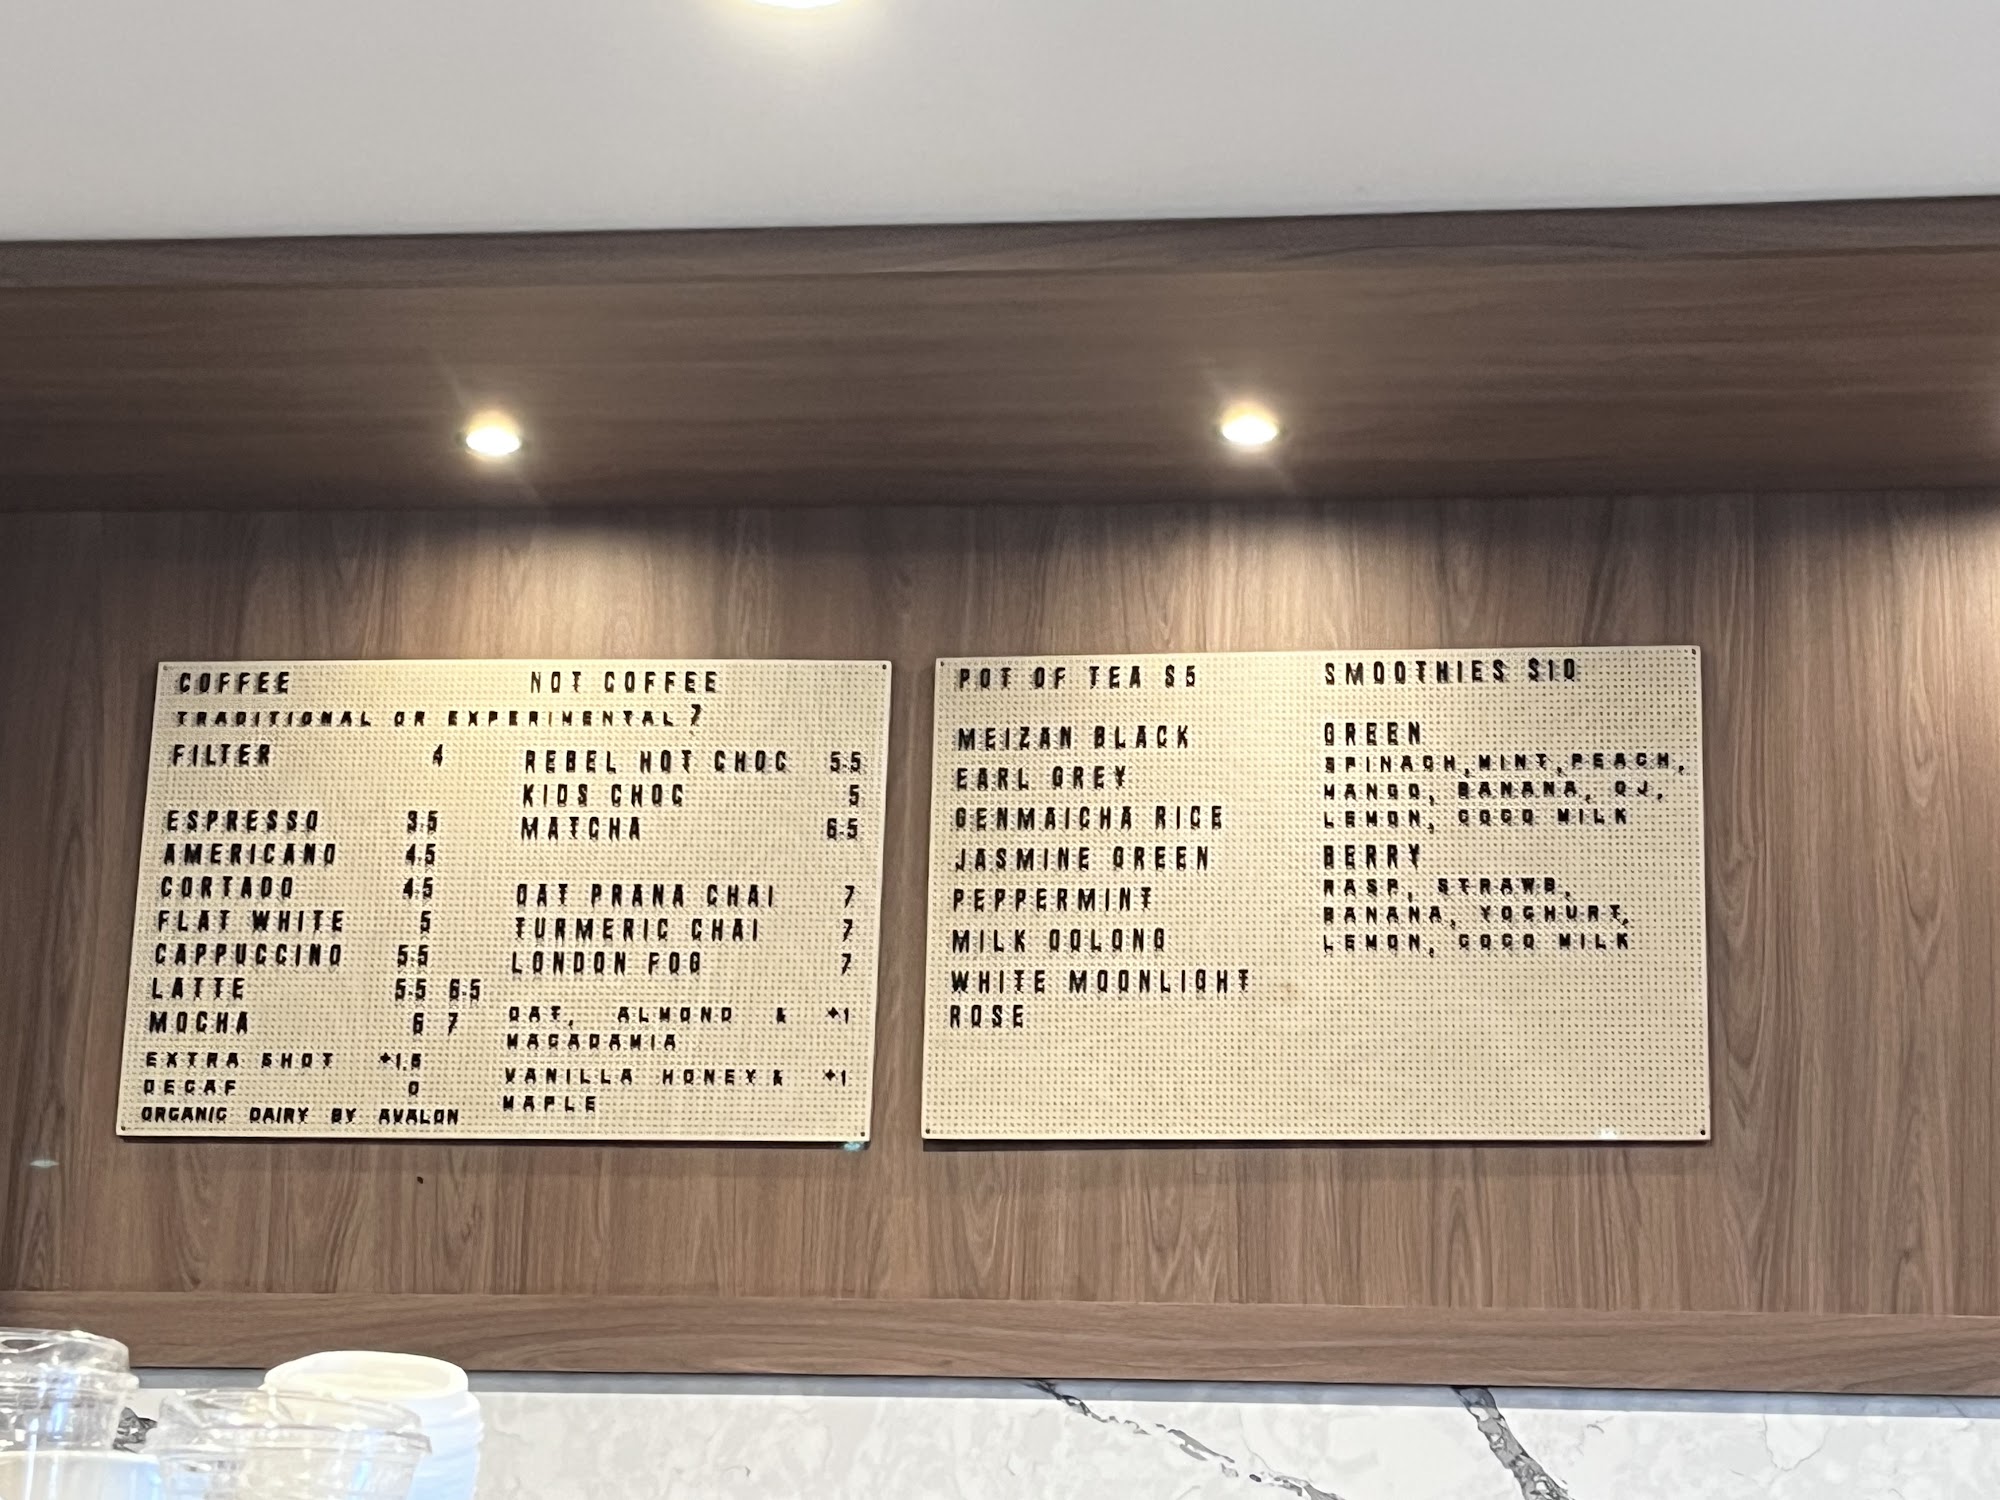 COFFEE
TRADITIONAL OR EXPERIMENTAL ?
FILTER 4
ESPRESSO 3.5
AMERICANO 4.5
CORTADO 4.5
FLAT WHITE 5
CAPPUCCINO 5.5
LATTE 5.5 6.5
MOCHA 6 7
EXTRA SHOT +1.5
DECAF 0
ORGANIC DAIRY BY AVALON
NOT COFFEE
REBEL HOT CHOC 5.5
KIDS CHOC 5
MATCHA 6.5
OAT PRANA CHAI 7
TURMERIC CHAI 7
LONDON FOG 7
OAT, ALMOND & +1
MACADAMIA
VANILLA HONEY & +1
MAPLE
POT OF TEA $5
MEIZAN BLACK
EARL GREY
GENMAICHA RICE
JASMINE GREEN
PEPPERMINT
MILK OOLONG
WHITE MOONLIGHT
ROSE
SMOOTHIES $10
GREEN
SPINACH, MINT, PEACH,
MANGO, BANANA, OJ,
LEMON, COCO MILK
BERRY
RASP, STRAWB,
BANANA, YOGHURT,
LEMON, COCO MILK